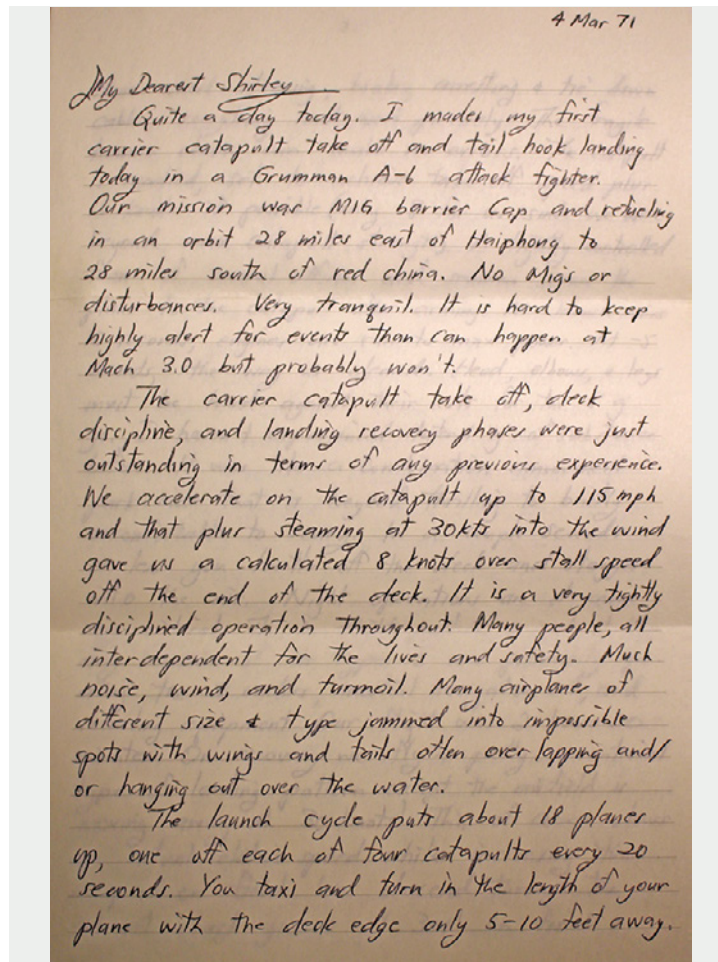 4 Mar 71
My Dearest Shirley
Quite a day today. I mader my first
carrier catapult take off and tail hook landing
today in a Grumman A-6 attack fighter.
Our mission was MIG barrier Cap and refueling
in an orbit 28 miles east of Haiphong to
28 miles south of red china. No Migs or
disturbances. Very tranquil. It is hard to keep
highly alert for events than can happen at
Mach 3.0 but probably won't.
The carrier catapult take off, deck
discipline, and landing recovery phases were just
outstanding in terms of any previous experience.
We accelerate on the catapult up to 115 mph
and that plus steaming at 30kts into the wind
gave us a calculated 8 knots over stall speed
off the end of the deck. It is a very tightly
disciplined operation throughout. Many people, all
interdependent for the lives and safety. Much
noise, wind, and turmoil. Many airplanes of
different size & type jammed into impossible
spots with wings and tails often over lapping and/
or hanging out over the water.
The launch cycle puts about 18 planes
up, one off each of four catapults every 20
seconds. You taxi and turn in the length of your
plane with the deck edge only 5-10 feet away.